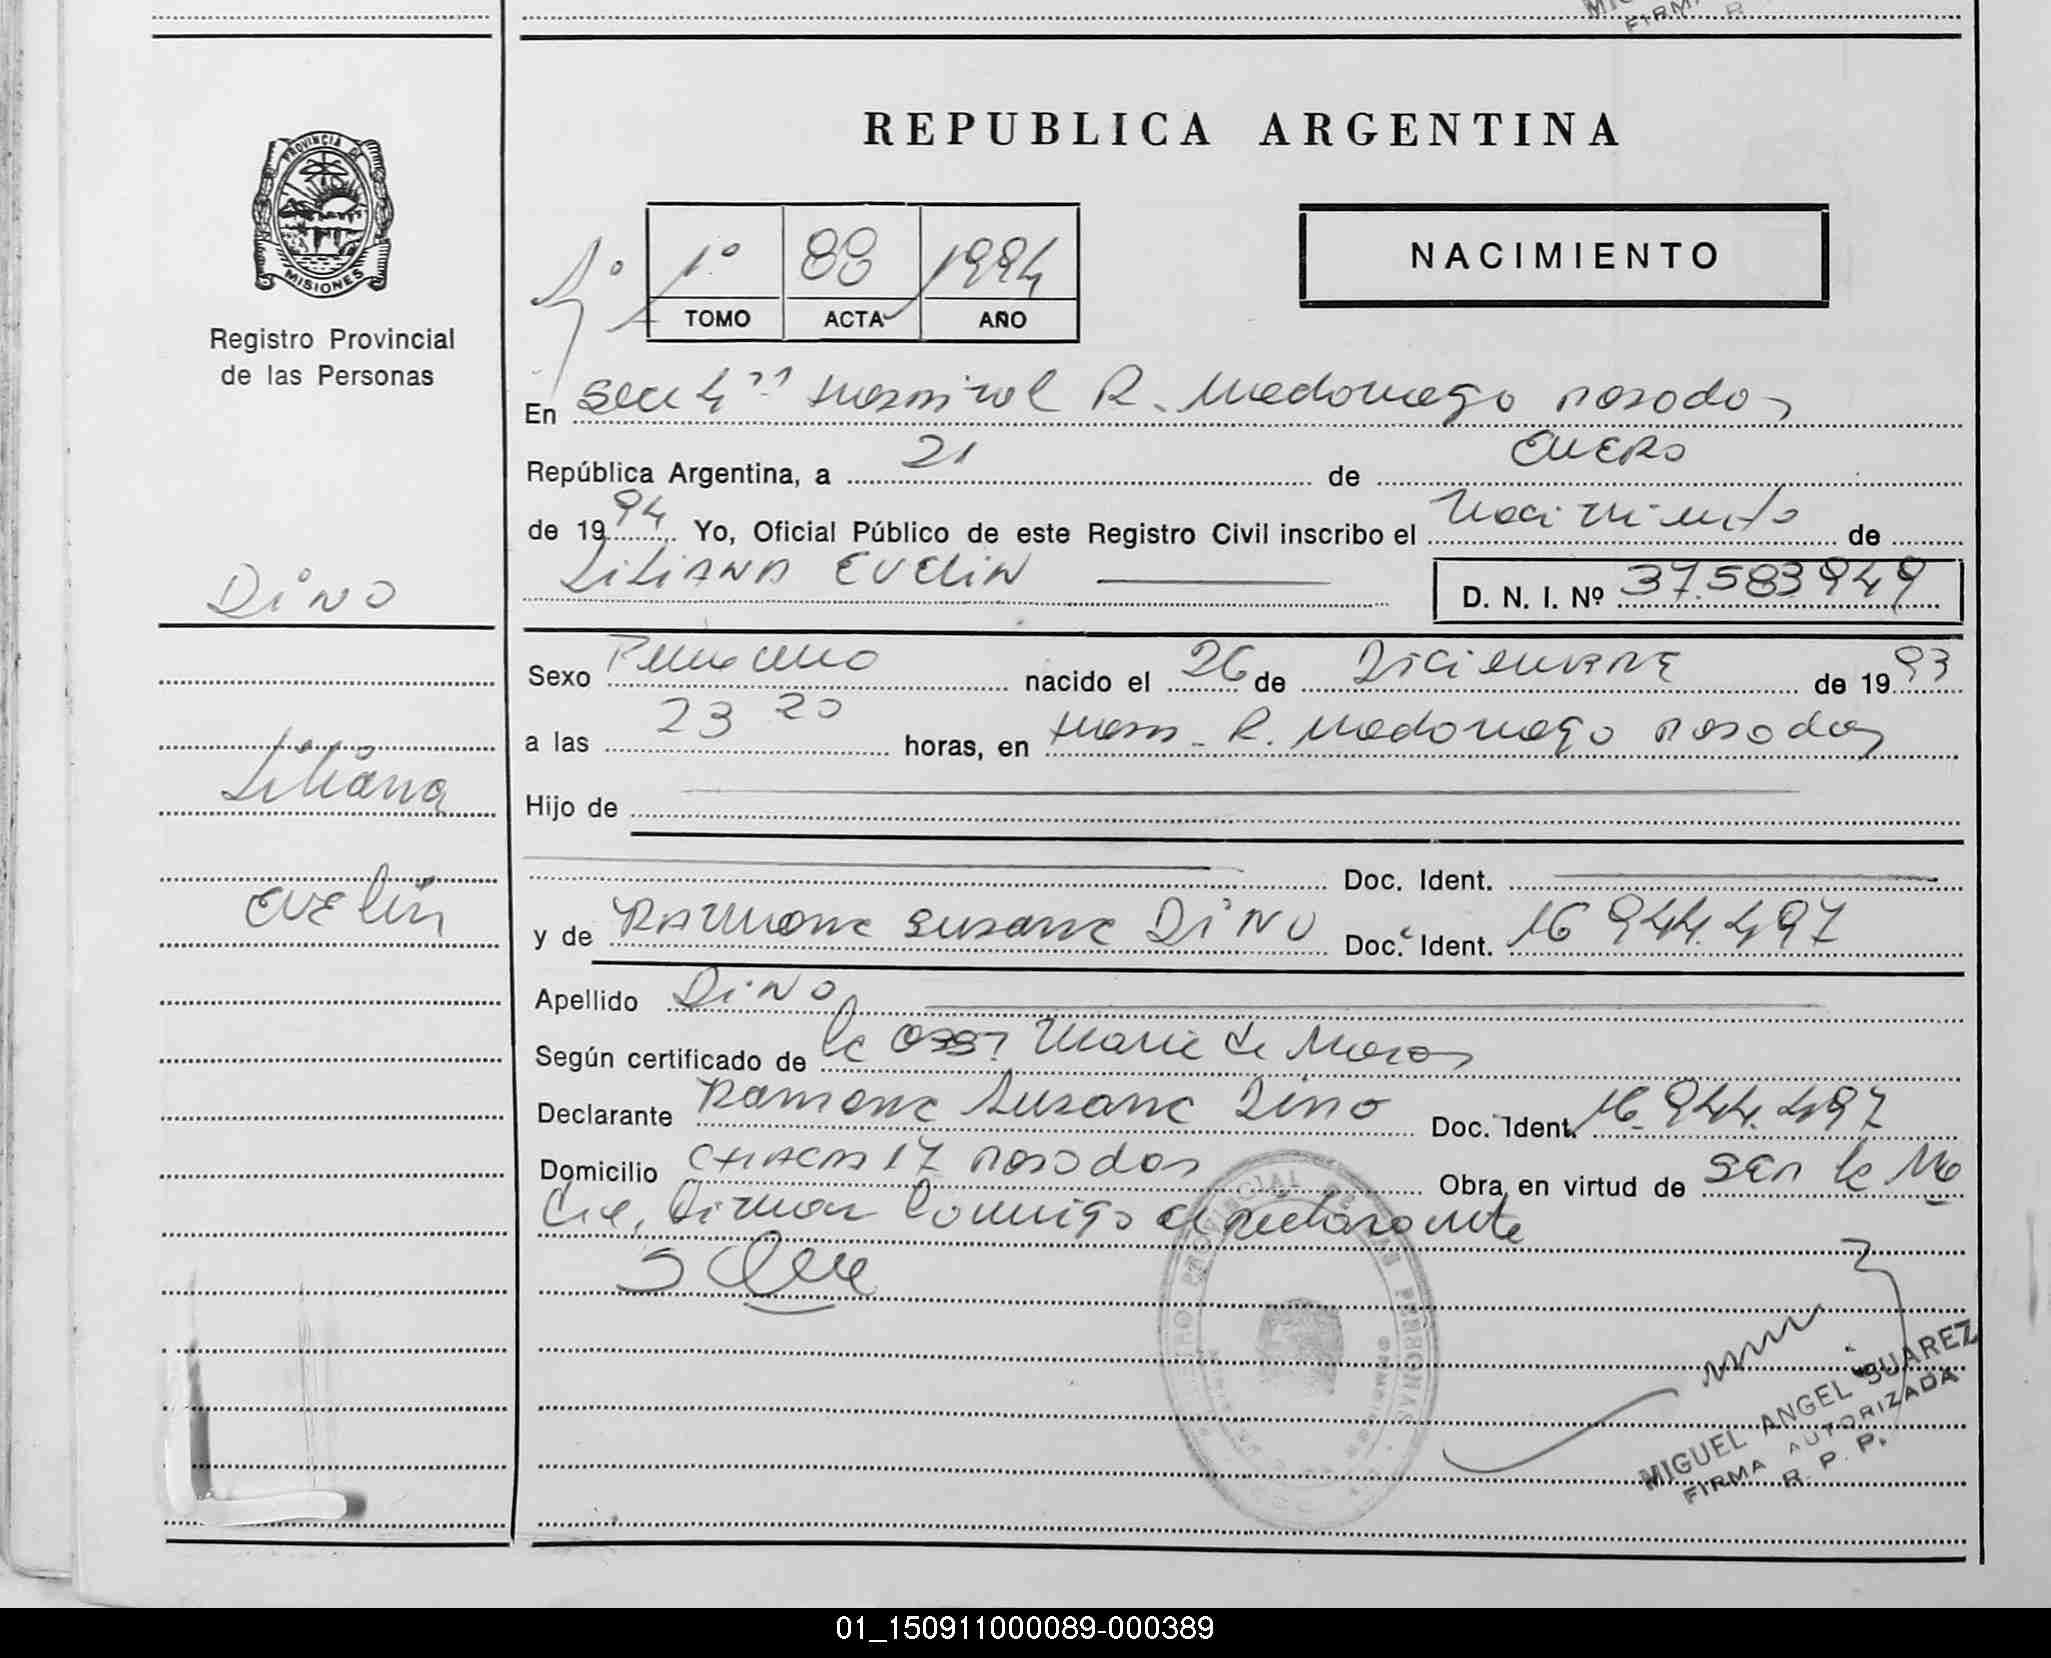 REPUBLICA ARGENTINA
PROVINCIA DE
MISIONES
Registro Provincial
de las Personas
1º 88 1994
TOMO ACTA AÑO
NACIMIENTO
En Secc 4ª Hospital R. Madariaga Posadas
República Argentina, a 21 de ENERO
de 1994 Yo, Oficial Público de este Registro Civil inscribo el Nacimiento de
LILIANA EVELIN D. N. I. Nº 37.583949
DINO
Liliana
Evelin
Sexo Femenino nacido el 26 de Diciembre de 1993
a las 23 20 horas, en Hosp. R. Madariaga Posadas
Hijo de
Doc. Ident.
y de Ramona Susana DINO Doc. Ident. 16 944.497
Apellido DINO
Según certificado de la Obst Maria de
Declarante Ramona Susana Dino Doc. Ident. 16.944.497
Domicilio CHACRA 17 Posadas Obra en virtud de ser la Ma
dre, Firman Conmigo el declarante
REGISTRO PROVINCIAL DE LAS PERSONAS
MIGUEL ANGEL SUAREZ
FIRMA AUTORIZADA
R. P. P.
01_150911000089-000389